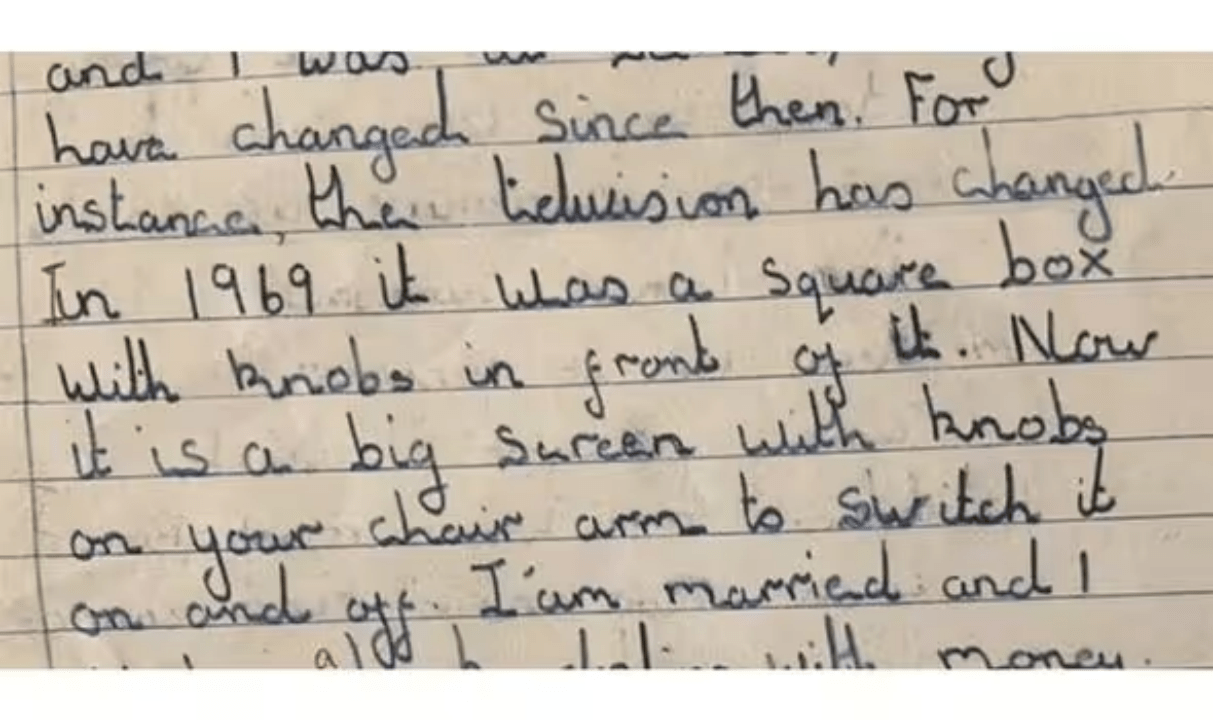 and I was
have changed since then. For
instance, the television has changed.
In 1969 it was a square box
with knobs in front of it. Now
it is a big screen with knobs
on your chair arm to switch it
on and off. I'am married and I
with money.